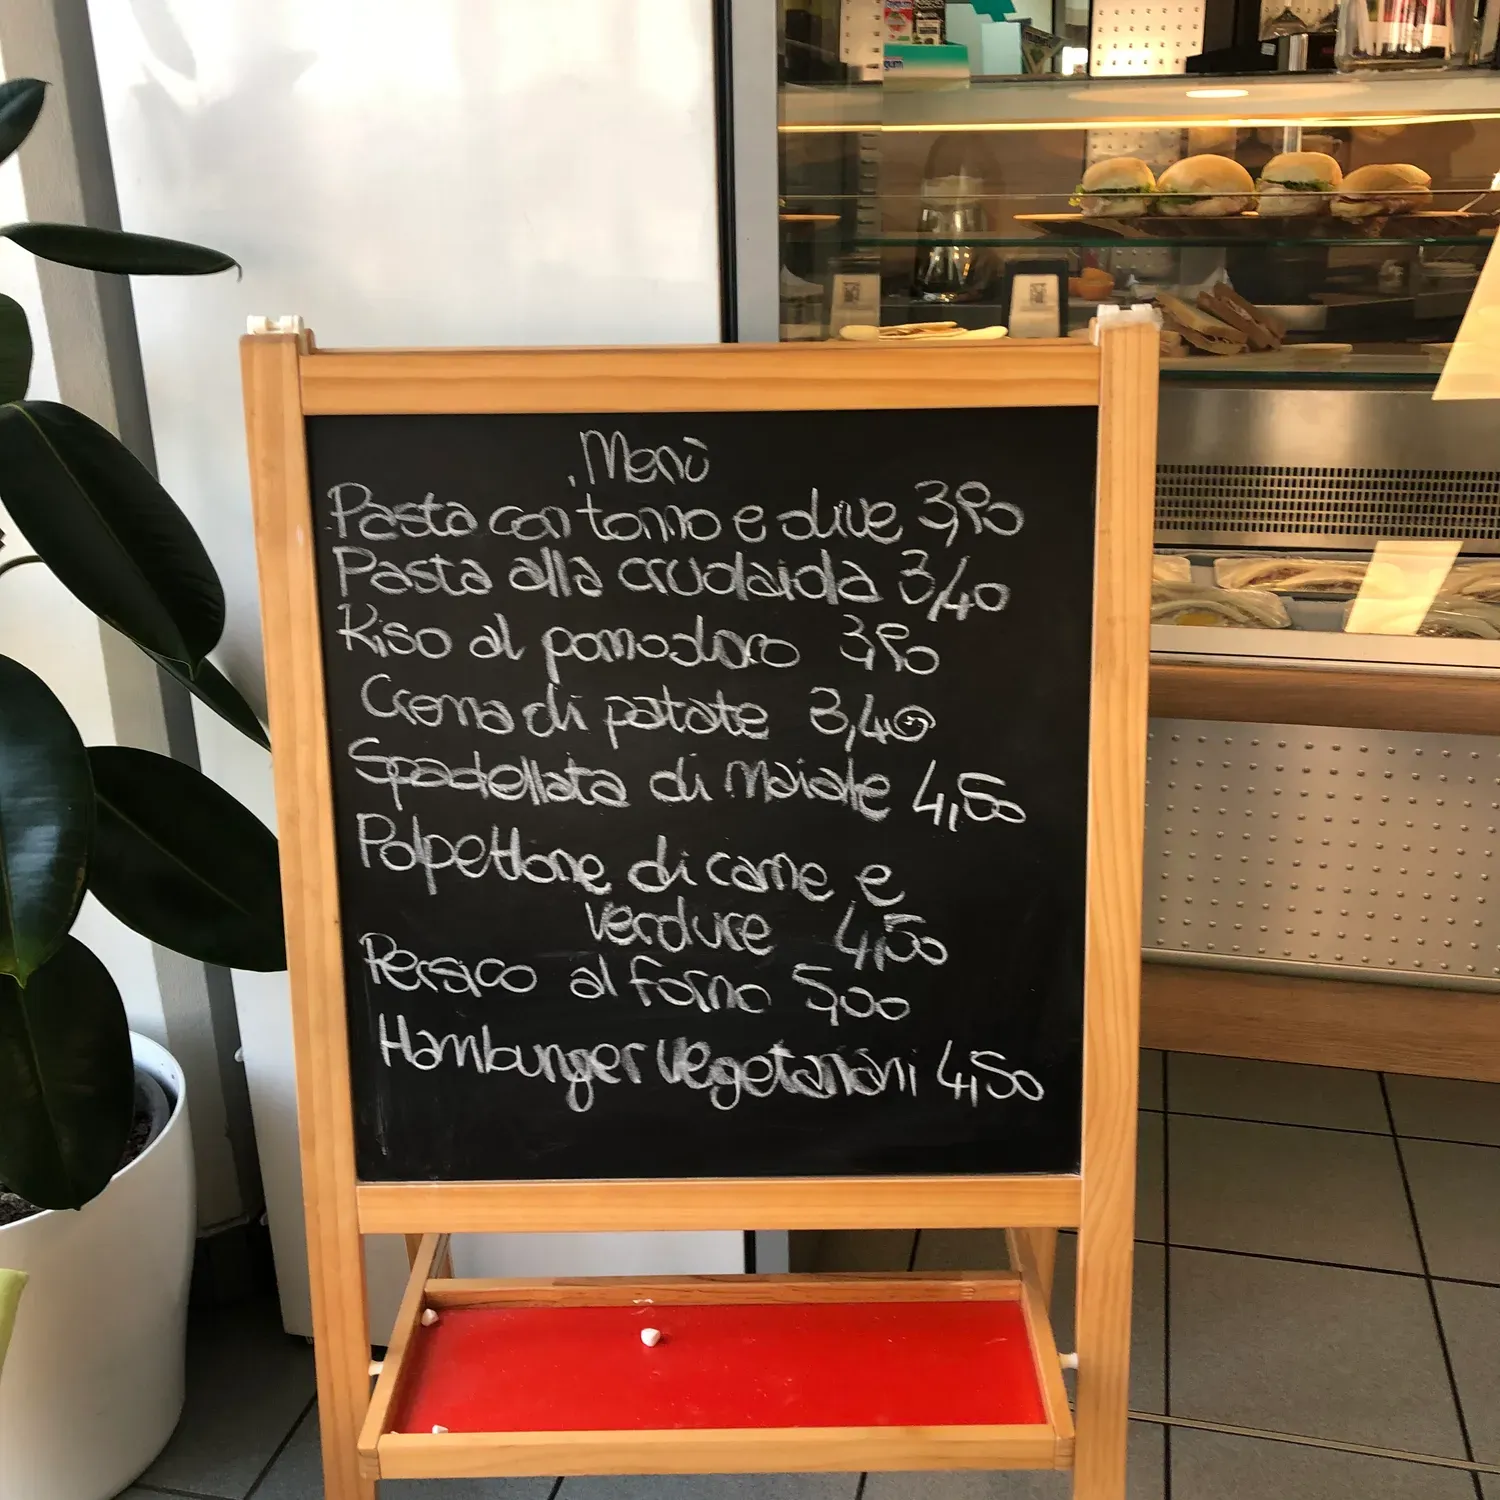 Menù
Pasta con tonno e olive 3,80
Pasta alla crudaiola 3,40
Riso al pomodoro 3,80
Crema di patate 3,40
Spadellata di maiale 4,50
Polpettone di carne e
verdure 4,50
Persico al forno 5,00
Hamburger vegetariani 4,50